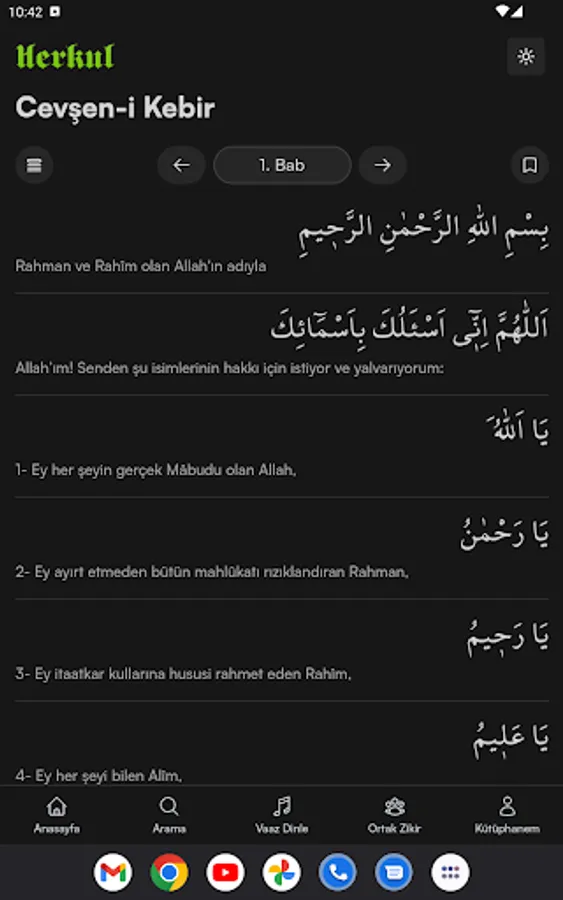 10:42
Herkul
Cevşen-i Kebir
1. Bab
بِسْمِ اللهِ الرَّحْمٰنِ الرَّحٖيمِ
Rahman ve Rahîm olan Allah'ın adıyla
اَللّٰهُمَّ اِنّٖٓى اَسْئَلُكَ بِاَسْمَٓائِكَ
Allah'ım! Senden şu isimlerinin hakkı için istiyor ve yalvarıyorum:
يَا اَللهُ
1- Ey her şeyin gerçek Mâbudu olan Allah,
يَا رَحْمٰنُ
2- Ey ayırt etmeden bütün mahlûkatı rızıklandıran Rahman,
يَا رَحٖيمُ
3- Ey itaatkar kullarına hususi rahmet eden Rahîm,
يَا عَلٖيمُ
4- Ey her şeyi bilen Alîm,
Anasayfa
Arama
Vaaz Dinle
Ortak Zikir
Kütüphanem